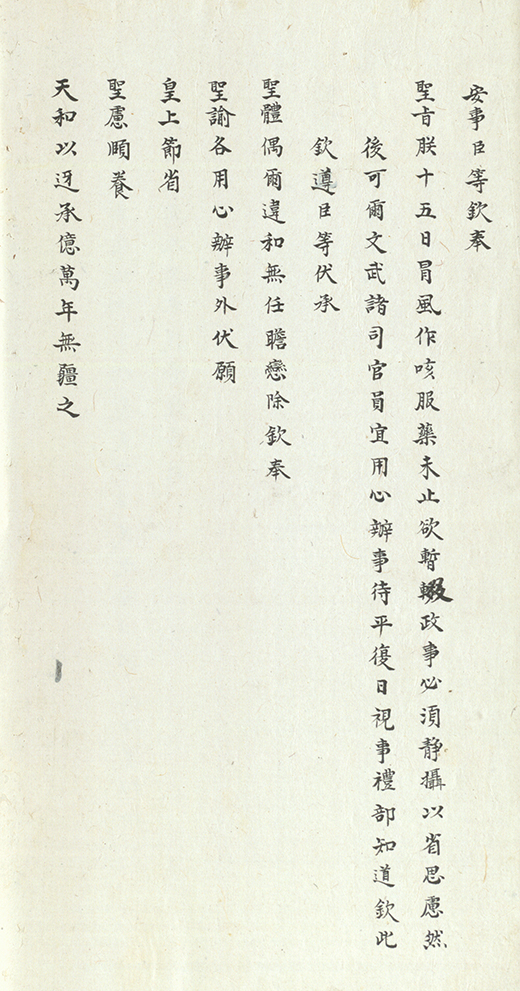 安事臣等欽奉
聖旨朕十五日冐風作咳服藥未止欲暫輟政事必須靜攝以省思慮然
後可爾文武諸司官員宜用心辦事待平復日視事禮部知道欽此
欽遵臣等伏承
聖體偶爾違和無任瞻戀除欽奉
聖諭各用心辦事外伏願
皇上節省
聖慮頤養
天和以迓承億萬年無疆之